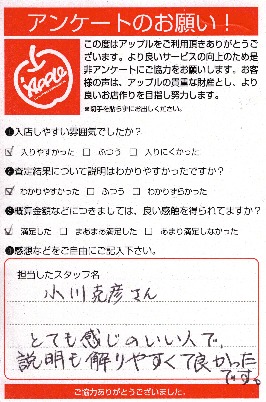 アンケートのお願い！
Apple
この度はアップルをご利用頂きありがとうございます。より良いサービスの向上のため是非アンケートにご協力をお願いします。お客様の声は、アップルの貴重な財産とし、より良いお店作りを目指し努力します。
※切手を貼らずにお出しください。
❶入店しやすい雰囲気でしたか？
☑ 入りやすかった □ ふつう □ 入りにくかった
❷査定結果について説明はわかりやすかったですか？
☑ わかりやすかった □ ふつう □ わかりずらかった
❸概算金額などにつきましては、良い感触を得られてますか？
☑ 満足した □ まぁまぁ満足した □ あまり満足しなかった
❹感想などをご自由にご記入下さい。
担当したスタッフ名
小川克彦さん
とても感じのいい人で、
説明も解りやすくて良かった
です。
ご協力ありがとうございました。